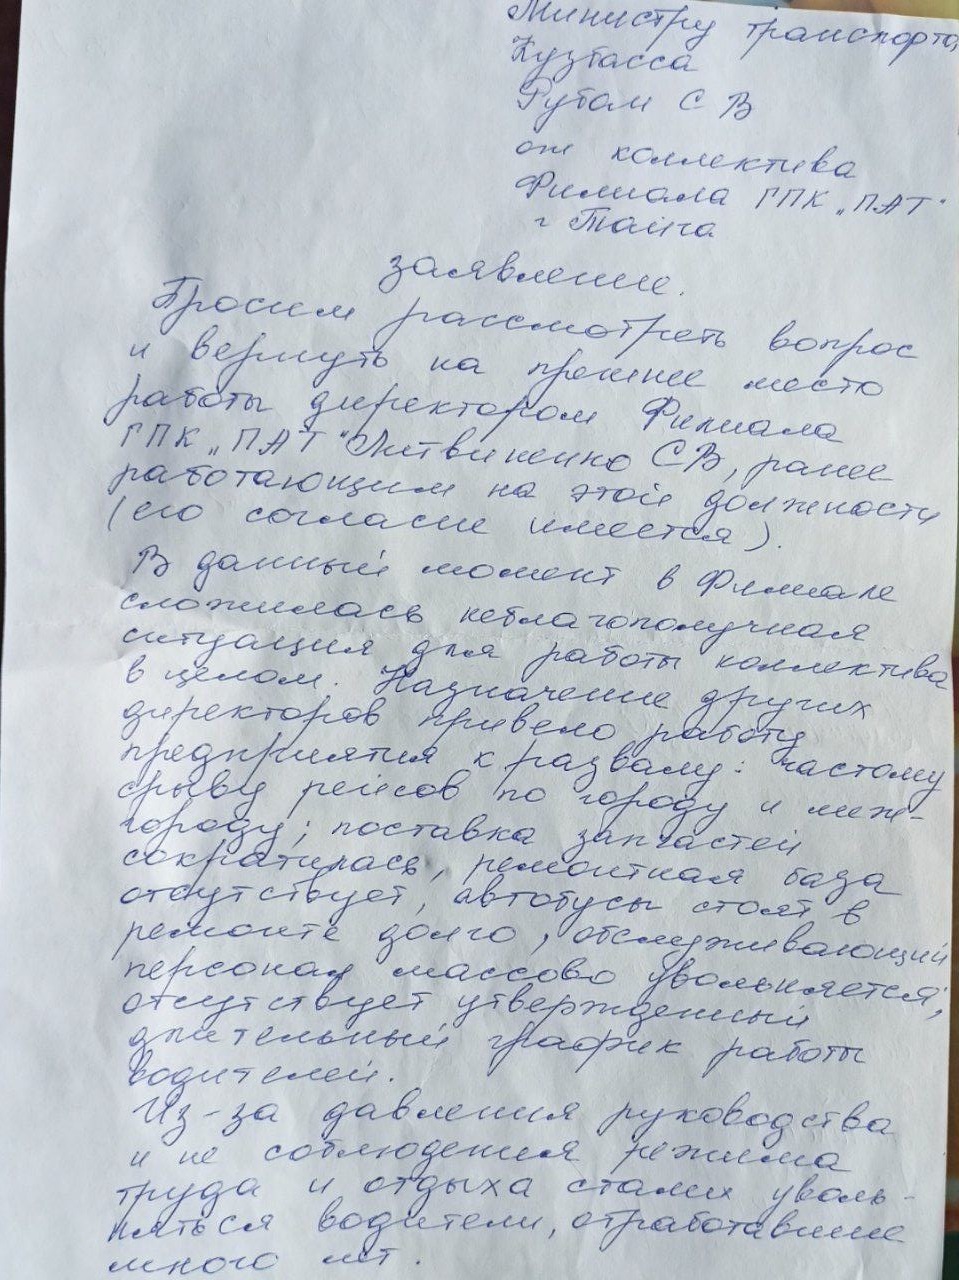 Министру транспорта
Кузбасса
Рутам С В
от коллектива
Филиала ГПК „ПАТ"
г Тайга
заявление.
Просим рассмотреть вопрос
и вернуть на прежнее место
работы директором Филиала
ГПК „ПАТ" Литвиненко СВ, ранее
работающим на этой должности
(его согласие имеется).
В данный момент в Филиале
сложилась неблагополучная
ситуация для работы коллектива
в целом. Назначение других
директоров привело работу
предприятия к развалу: частому
срыву рейсов по городу и меж-
городу; поставка запчастей
сократилась, ремонтная база
отсутствует, автобусы стоят в
ремонте долго, обслуживающий
персонал массово увольняется;
отсутствует утвержденный
длительный график работы
водителей.
Из-за давления руководства
и не соблюдения режима
труда и отдыха стали уволь-
няться водители, отработавшие
много лет.